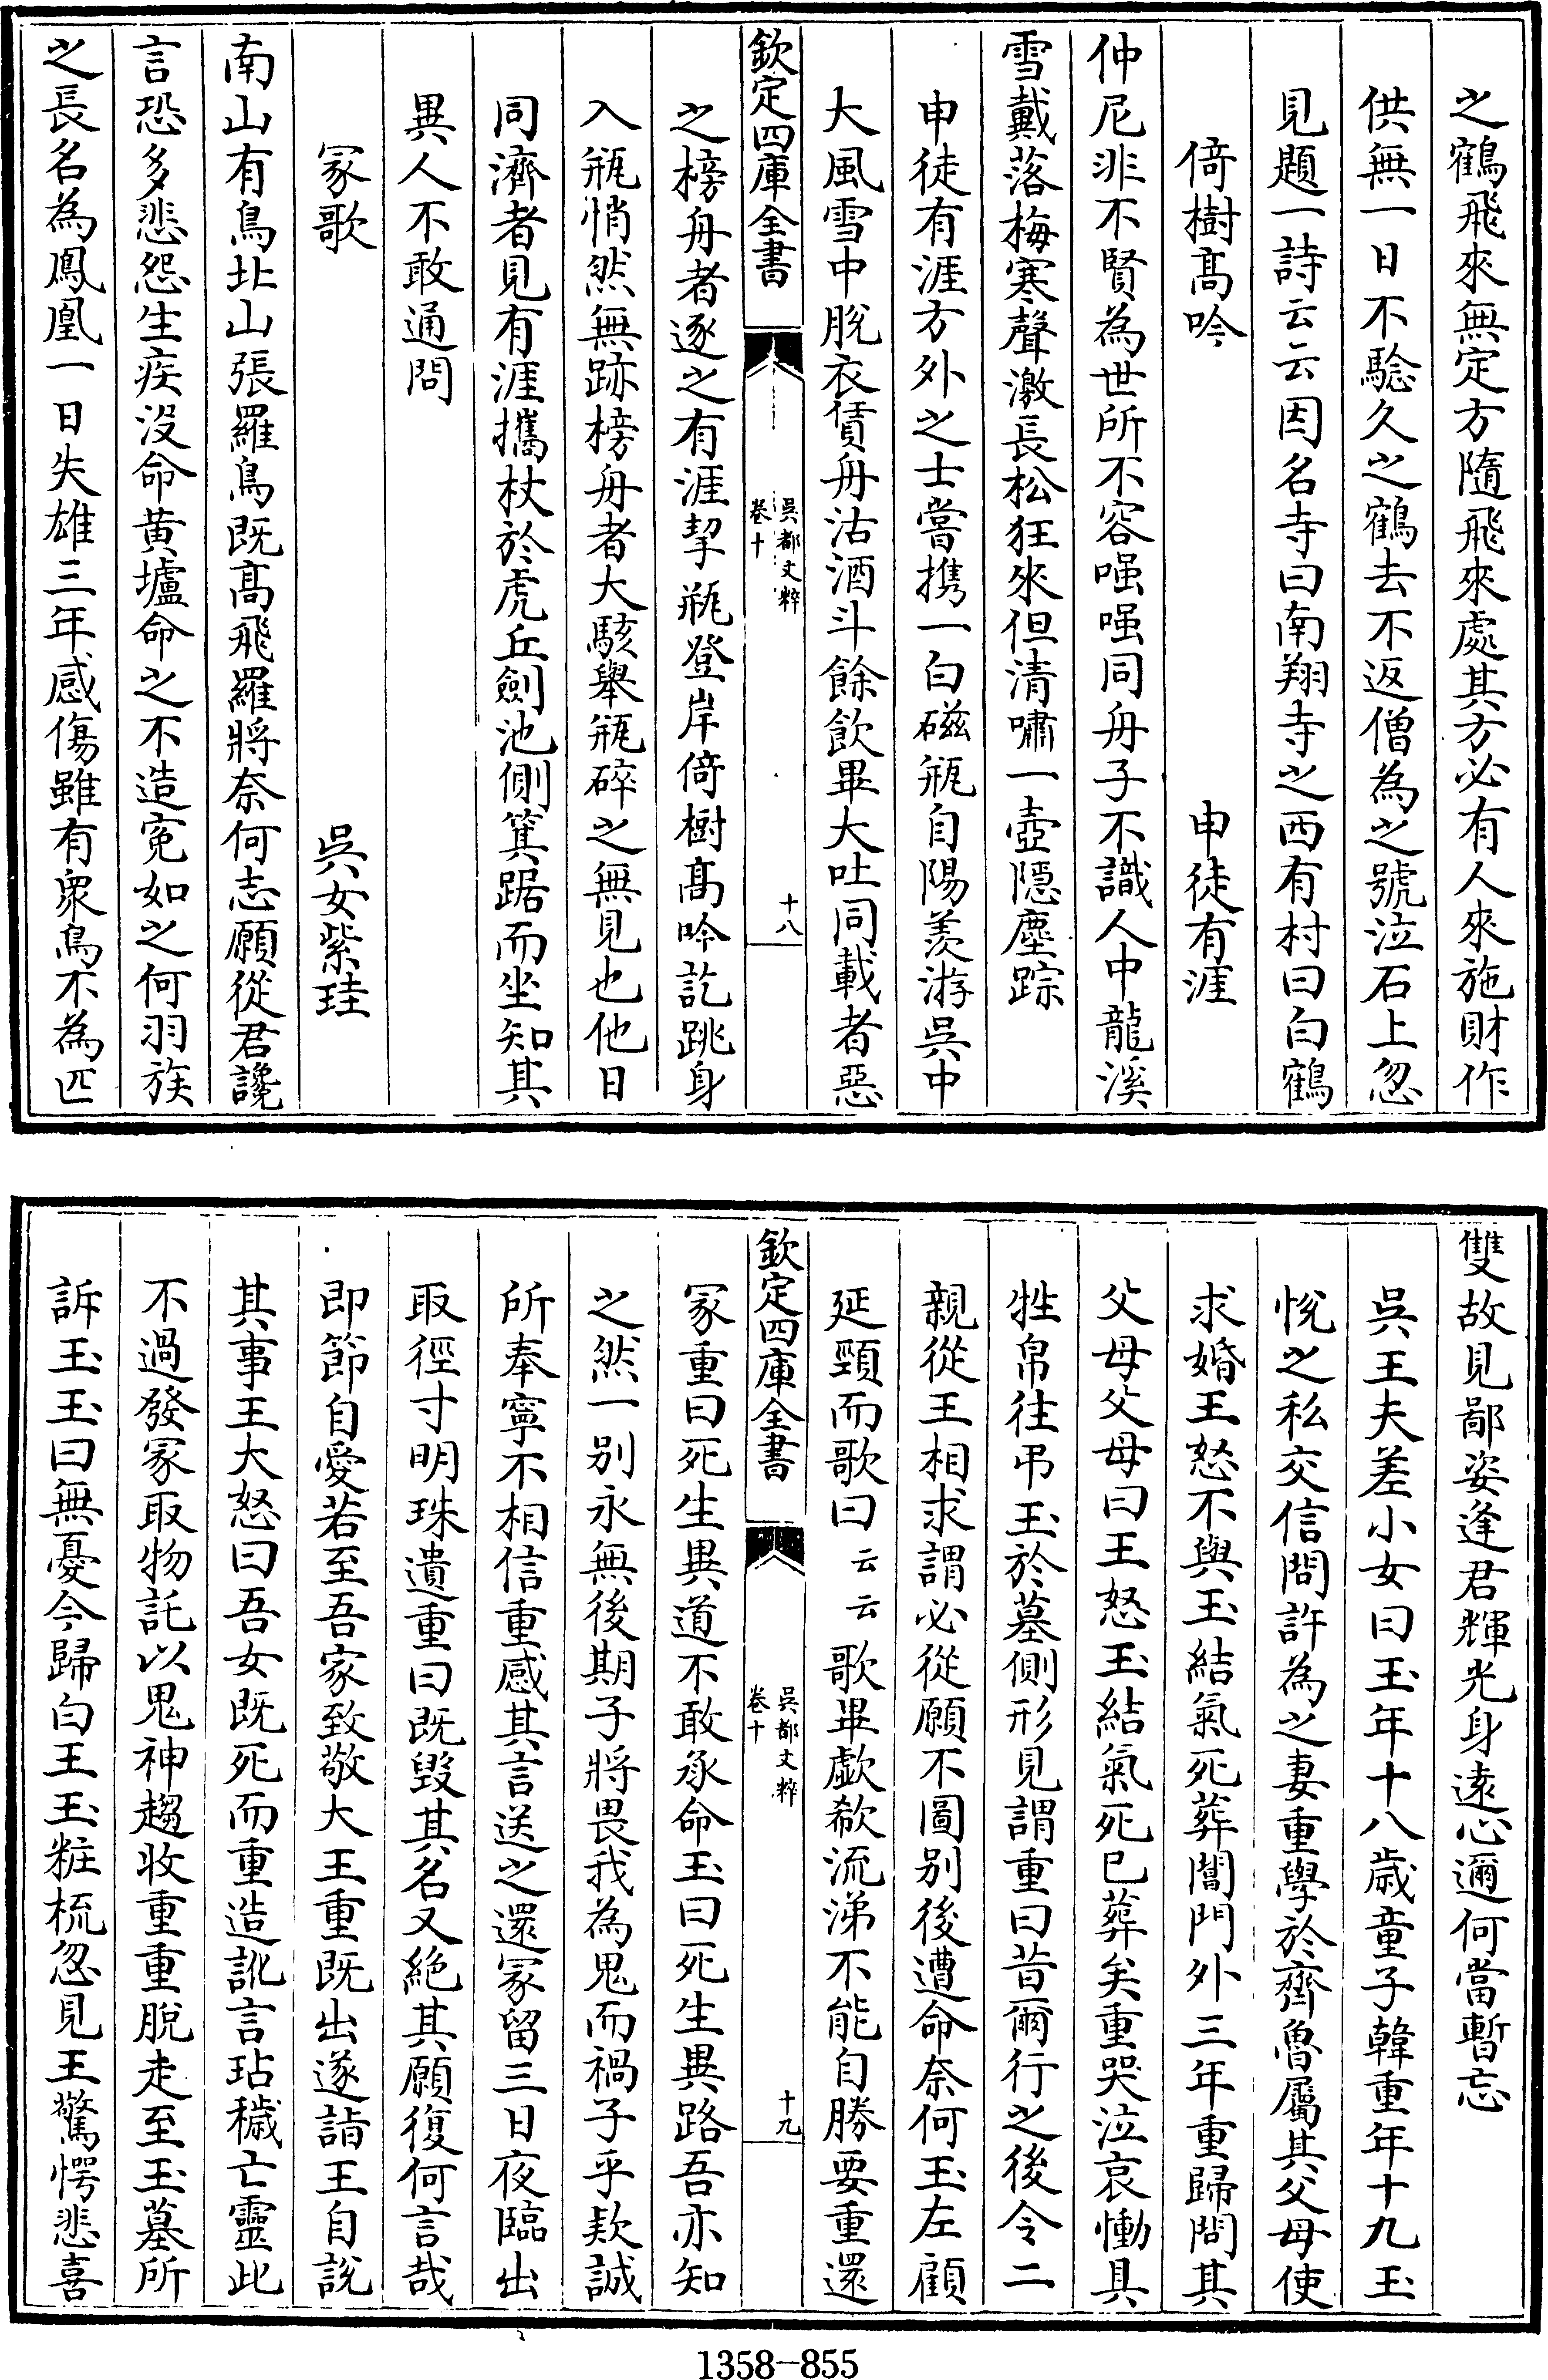 之鶴飛來無定方隨飛來處其方必有人來施財作
供無一日不驗久之鶴去不返僧為之號泣石上忽
見題一詩云云因名寺曰南翔寺之西有村曰白鶴
倚樹髙吟　申徒有涯
仲尼非不賢為世所不容嗤嗤同舟子不識人中龍溪
雪戴落梅寒聲激長松狂來但清嘯一壺隱塵踪
申徒有涯方外之士嘗携一白磁瓶自陽羨游吳中
大風雪中脫衣賃舟沽酒斗餘飲畢大吐同載者惡
欽定四庫全書　吳都文粹　卷十　十八
之榜舟者逐之有涯挈瓶登岸倚樹髙吟訖跳身
入瓶悄然無跡榜舟者大駭舉瓶碎之無見也他日
同濟者見有涯攜杖於虎丘劍池側箕踞而坐知其
異人不敢通問
冢歌　吳女紫珪
南山有鳥北山張羅鳥既髙飛羅將奈何志願從君讒
言恐多悲怨生疾沒命黃壚命之不造寃如之何羽族
之長名為鳳凰一日失雄三年感傷雖有衆鳥不為匹
雙故見鄙姿逢君輝光身遠心邇何當暫忘
吳王夫差小女曰玉年十八歲童子韓重年十九玉
悅之私交信問許為之妻重學於齊魯屬其父母使
求婚王怒不與玉結氣死葬閶門外三年重歸問其
父母父母曰王怒玉結氣死已葬矣重哭泣哀慟具
牲帛往弔玉於墓側形見謂重曰昔爾行之後令二
親從王相求謂必從願不圖别後遭命奈何玉左顧
延頸而歌曰云云歌畢歔欷流涕不能自勝要重還
欽定四庫全書　吳都文粹　卷十　十九
冢重曰死生異道不敢承命玉曰死生異路吾亦知
之然一别永無後期子將畏我為鬼而禍子乎欵誠
所奉寧不相信重感其言送之還冢留三日夜臨出
取徑寸明珠遺重曰既毀其名又絶其願復何言哉
即節自愛若至吾家致敬大王重既出遂詣王自說
其事王大怒曰吾女既死而重造訛言玷穢亡靈此
不過發冢取物託以鬼神趨收重重脫走至玉墓所
訴玉玉曰無憂今歸白王玉粧梳忽見王驚愕悲喜
1358-855